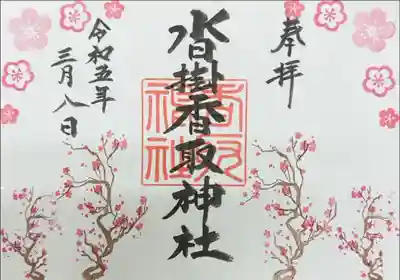 奉拝
沓掛香取神社
香取
神社
令和五年
三月八日